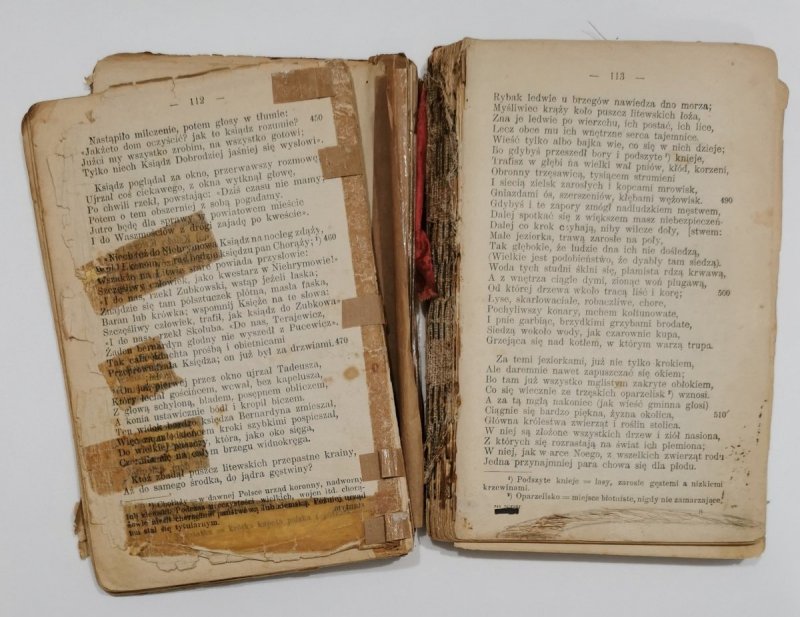 — 112 —
Nastąpiło milczenie, potem głosy w tłumie: 450
«Jakżeto dom oczyścić? jak to ksiądz rozumie?
Jużci my wszystko zrobim, na wszystko gotowi;
Tylko niech Ksiądz Dobrodziej jaśniej się wysłowi».
Ksiądz poglądał za okno, przerwawszy rozmowę;
Ujrzał coś ciekawego, z okna wytknął głowę,
Po chwili rzekł, powstając: «Dziś czasu nie mamy,
Potem o tem obszerniej z sobą pogadamy.
Jutro będę dla sprawy w powiatowem mieście
I do Waszmościów z drogi zajadę po kweście».
«Niech też do Niehrymowa Ksiądz na nocleg zdąży,
rzekł Ekonom, rad będzie księdzu pan Chorąży; ¹) 460
Wszakże na Litwie stare powiada przysłowie:
Szczęśliwy człowiek, jako kwestarz w Niehrymowie!»
«I do nas, rzekł Zubkowski, wstąp jeżeli łaska;
Znajdzie się tam półsztuczek płótna, masła faska,
Baran lub krówka; wspomnij Księże na te słowa:
Szczęśliwy człowiek, trafił, jak ksiądz do Zubkowa»
«I do nas», rzekł Skołuba. «Do nas, Terajewicz,
Żaden bernardyn głodny nie wyszedł z Pucewicz».
Tak cała szlachta prośbą i obietnicami
Przeprowadzała Księdza; on już był za drzwiami. 470
On już pierwej przez okno ujrzał Tadeusza,
Który leciał gościńcem, wcwał, bez kapelusza,
Z głową schyloną, bladem, posępnem obliczem,
A konia ustawicznie bódł i kropił biczem.
Ten widok bardzo księdza Bernardyna zmieszał,
Więc za młodzieńcem kroki szybkimi pospieszał,
Do wielkiej puszczy, która, jako oko sięga,
Czerniła się na całym brzegu widnokręga.
Któż zbadał puszcz litewskich przepastne krainy,
Aż do samego środka, do jądra gęstwiny?
¹) Chorąży — w dawnej Polsce urząd koronny, nadworny
— 113 —
Rybak ledwie u brzegów nawiedza dno morza;
Myśliwiec krąży koło puszcz litewskich łoża,
Zna je ledwie po wierzchu, ich postać, ich lice,
Lecz obce mu ich wnętrzne serca tajemnice.
Wieść tylko albo bajka wie, co się w nich dzieje;
Bo gdybyś przeszedł bory i podszyte ¹) knieje,
Trafisz w głębi na wielki wał pniów, kłód, korzeni,
Obronny trzęsawicą, tysiącem strumieni
I siecią zielsk zarosłych i kopcami mrowisk,
Gniazdami ós, szerszeniów, kłębami wężowisk. 490
Gdybyś i te zapory zmógł nadludzkiem męstwem,
Dalej spotkać się z większem masz niebezpieczeń-
Dalej co krok czyhają, niby wilcze doły, [stwem:
Małe jeziorka, trawą zarosłe na poły,
Tak głębokie, że ludzie dna ich nie dośledzą,
(Wielkie jest podobieństwo, że dyabły tam siedzą).
Woda tych studni sklni się, plamista rdzą krwawą,
A z wnętrza ciągle dymi, zionąc woń plugawą,
Od której drzewa wkoło tracą liść i korę; 500
Łyse, skarłowaciałe, robaczliwe, chore,
Pochyliwszy konary, mchem kołtunowate,
I pnie garbiąc, brzydkimi grzybami brodate,
Siedzą wokoło wody, jak czarownic kupa,
Grzejąca się nad kotłem, w którym warzą trupa.
Za temi jeziorkami, już nie tylko krokiem,
Ale daremnie nawet zapuszczać się okiem;
Bo tam już wszystko mglistym zakryte obłokiem,
Co się wiecznie ze trzęskich oparzelisk ²) wznosi.
A za tą mgłą nakoniec (jak wieść gminna głosi)
Ciągnie się bardzo piękna, żyzna okolica, 510
Główna królestwa zwierząt i roślin stolica.
W niej są złożone wszystkich drzew i ziół nasiona,
Z których się rozrastają na świat ich plemiona;
W niej, jak w arce Noego, z wszelkich zwierząt rodu
Jedna przynajmniej para chowa się dla płodu.
¹) Podszyte knieje = lasy, zarosłe gęstemi a nizkiemi
krzewinami.
²) Oparzelisko = miejsce błotniste, nigdy nie zamarzające.